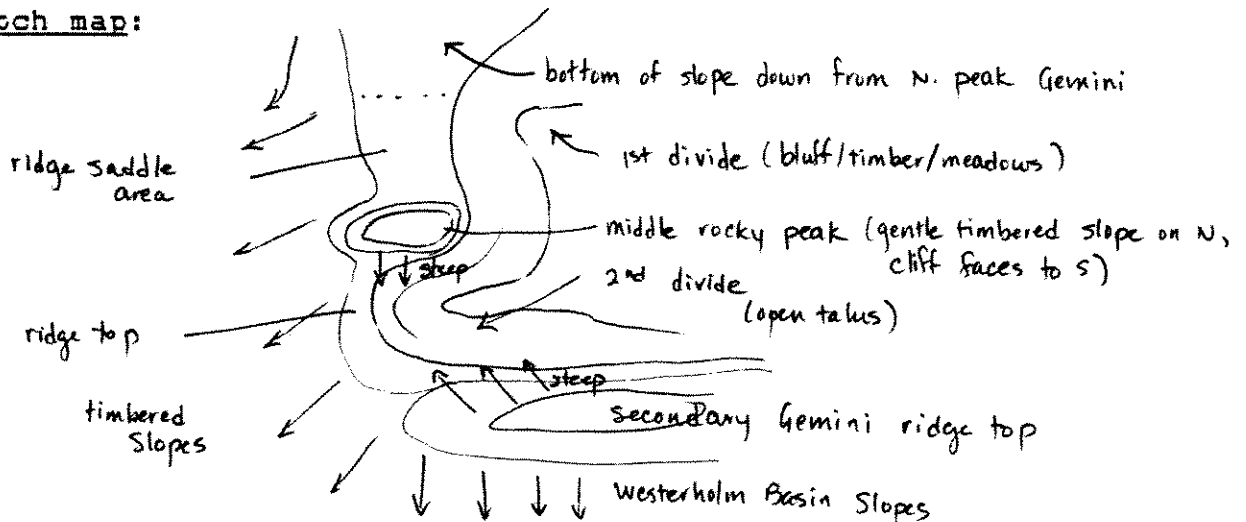 tch map:
bottom of slope down from N. peak Gemini
ridge saddle
area
1st divide (bluff/timber/meadows)
middle rocky peak (gentle timbered slope on N,
cliff faces to S)
steep
2nd divide
(open talus)
ridge top
steep
timbered
Slopes
Secondary Gemini ridge top
Westerholm Basin Slopes